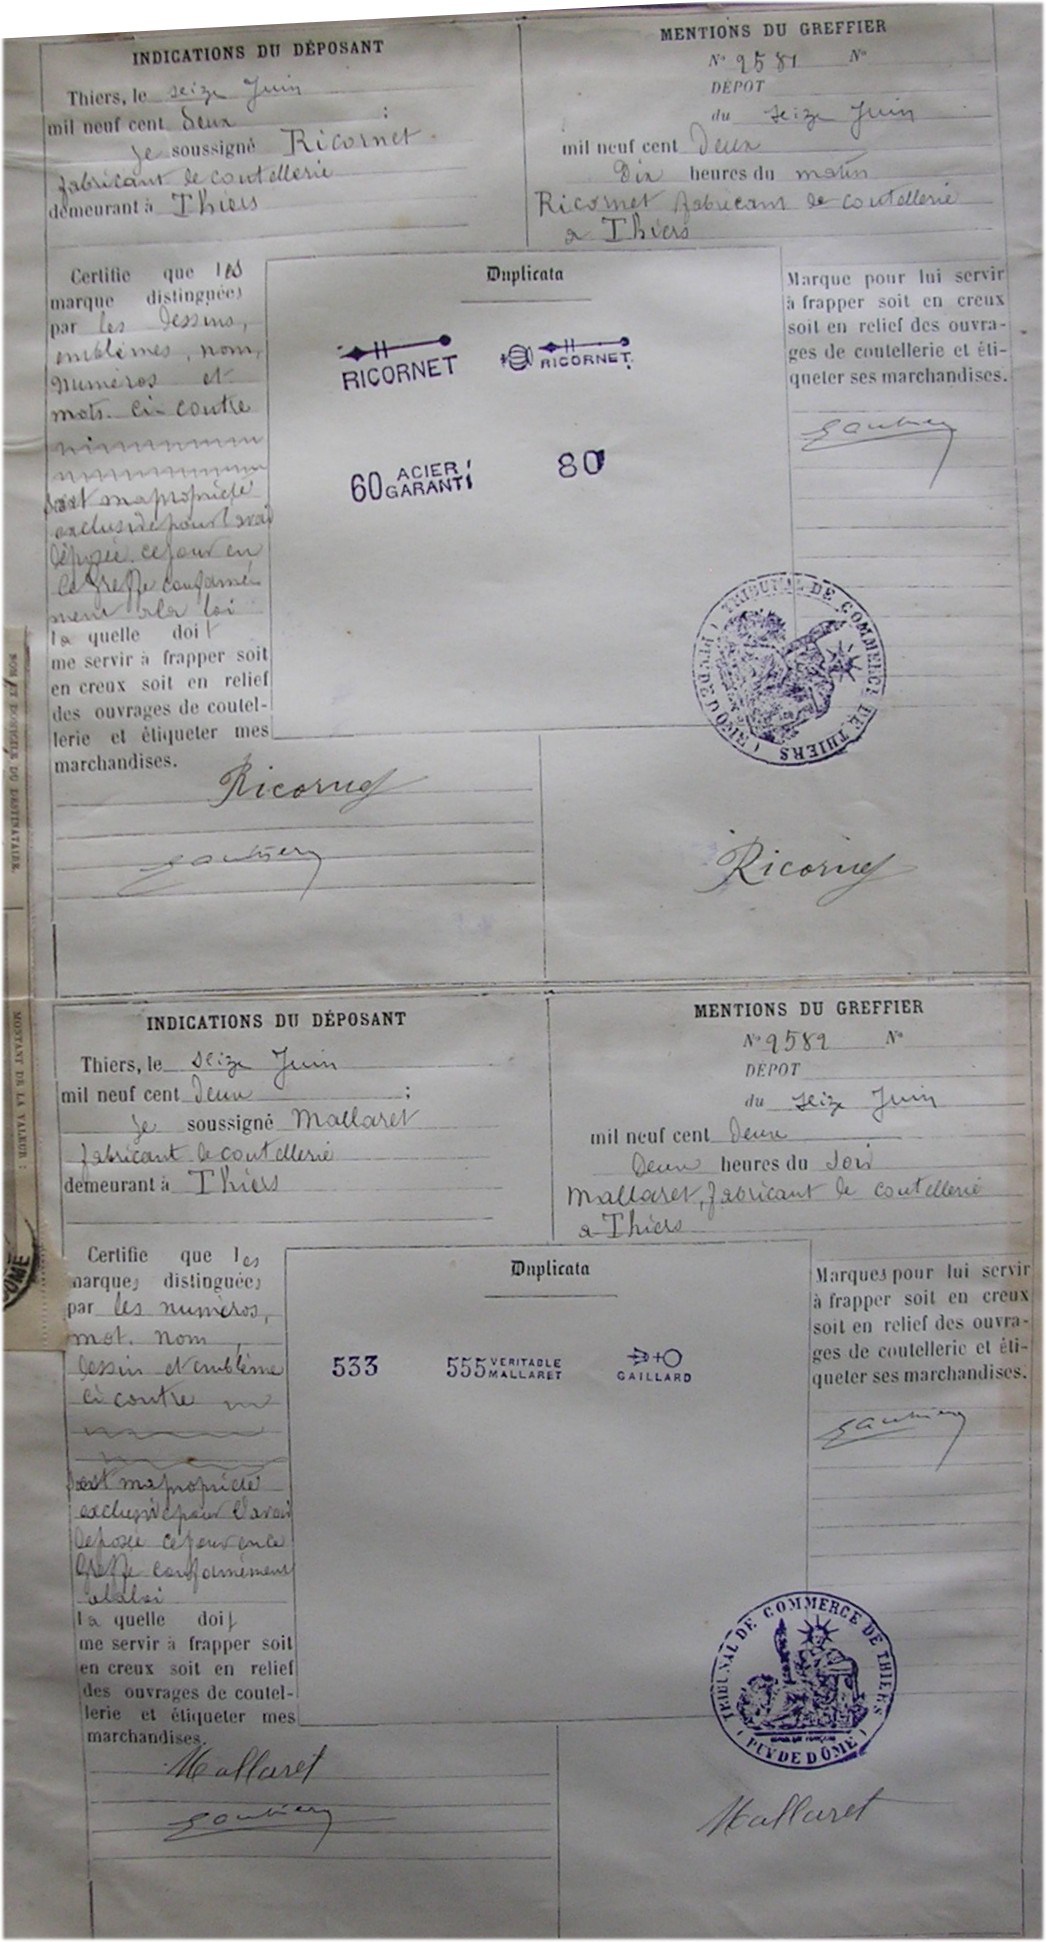 INDICATIONS DU DÉPOSANT
Thiers, le seize Juin
mil neuf cent deux ;
Je soussigné Ricornet
fabricant de coutellerie
demeurant à Thiers
MENTIONS DU GREFFIER
N° 9581 N°
DÉPOT
du seize Juin
mil neuf cent Deux
Dix heures du matin
Ricornet fabricant de coutellerie
a Thiers
Certifie que les
marque distinguées
par les dessins,
emblèmes, nom,
Numéros et
mots ci-contre
sont ma propriété
exclusive pour l'avoir
déposée ce jour en
ce Greffe conformé-
ment a la loi
la quelle doit
me servir à frapper soit
en creux soit en relief
des ouvrages de coutel-
lerie et étiqueter mes
marchandises.
Ricornet
Gauthier
Duplicata
RICORNET RICORNET.
60 ACIER GARANTI 80
Marque pour lui servir
à frapper soit en creux
soit en relief des ouvra-
ges de coutellerie et éti-
queter ses marchandises.
Gauthier
TRIBUNAL DE COMMERCE DE THIERS
(PUY DE DÔME)
Ricornet
NOM ET DOMICILE DU DESTINATAIRE.
MONTANT DE LA VALEUR :
DÔME
INDICATIONS DU DÉPOSANT
Thiers, le seize Juin
mil neuf cent deux ;
Je soussigné Mallaret
fabricant de coutellerie
demeurant à Thiers
MENTIONS DU GREFFIER
N° 9582 N°
DÉPOT
du seize Juin
mil neuf cent Deux
Deux heures du soir
Mallaret, fabricant de coutellerie
a Thiers
Certifie que les
marques distinguées
par les numéros,
mot, nom,
dessin et emblème
ci contre
sont ma propriété
exclusive pour l'avoir
déposée ce jour en ce
Greffe conformément
a la loi
la quelle doit
me servir à frapper soit
en creux soit en relief
des ouvrages de coutel-
lerie et étiqueter mes
marchandises.
Mallaret
Gauthier
Duplicata
533 555 VERITABLE MALLARET GAILLARD
Marques pour lui servir
à frapper soit en creux
soit en relief des ouvra-
ges de coutellerie et éti-
queter ses marchandises.
Gauthier
TRIBUNAL DE COMMERCE DE THIERS
(PUY DE DÔME)
Mallaret